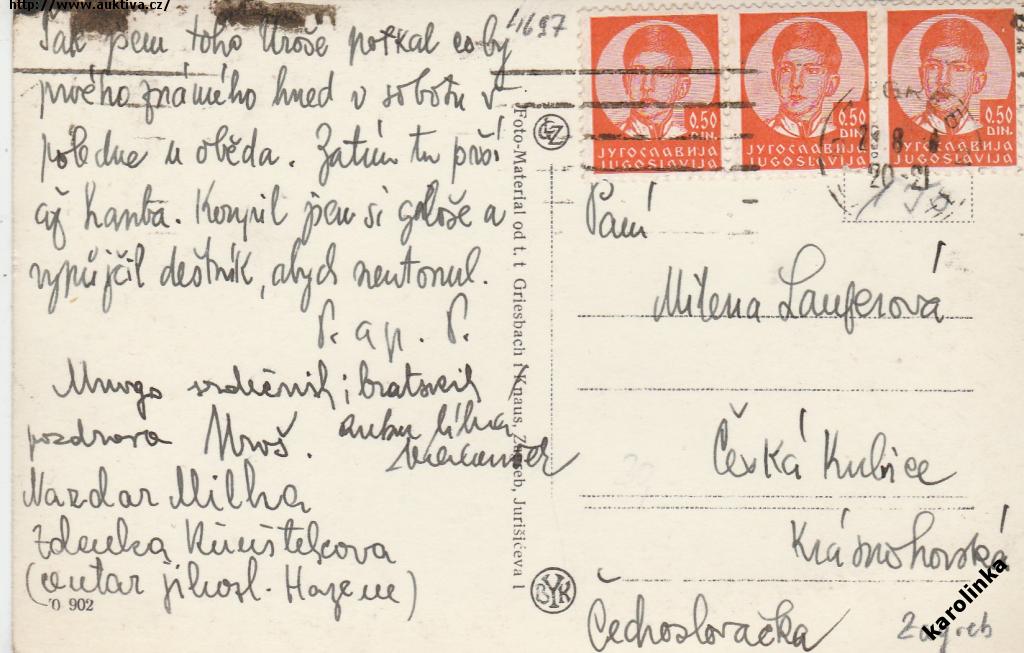 http://www.auktiva.cz/
4697
Tak jsem toho Uroše potkal coby
prvého známého hned v sobotu v
poledne u oběda. Zatím tu prší
až hanba. Koupil jsem si galoše a
vypůjčil deštník, abych neutonul.
P. ap. P.
Mnogo srdečnih i bratskih
pozdrava Uroš.
Nazdar Milha
Zdenka
(centar jihosl. Hazene)
O 902
Foto-Material od t. t. Griesbach i Knaus, Zagreb, Jurišićeva 1
0.50
DIN.
ЈУГОСЛАВИЈА
JUGOSLAVIJA
0.50
DIN.
ЈУГОСЛАВИЈА
JUGOSLAVIJA
0.50
DIN.
ЈУГОСЛАВИЈА
JUGOSLAVIJA
20-21
Paní
Milena Lauferová
Česká Kubice
Krásnohorská
Čechoslovačka
Zagreb
karolinka